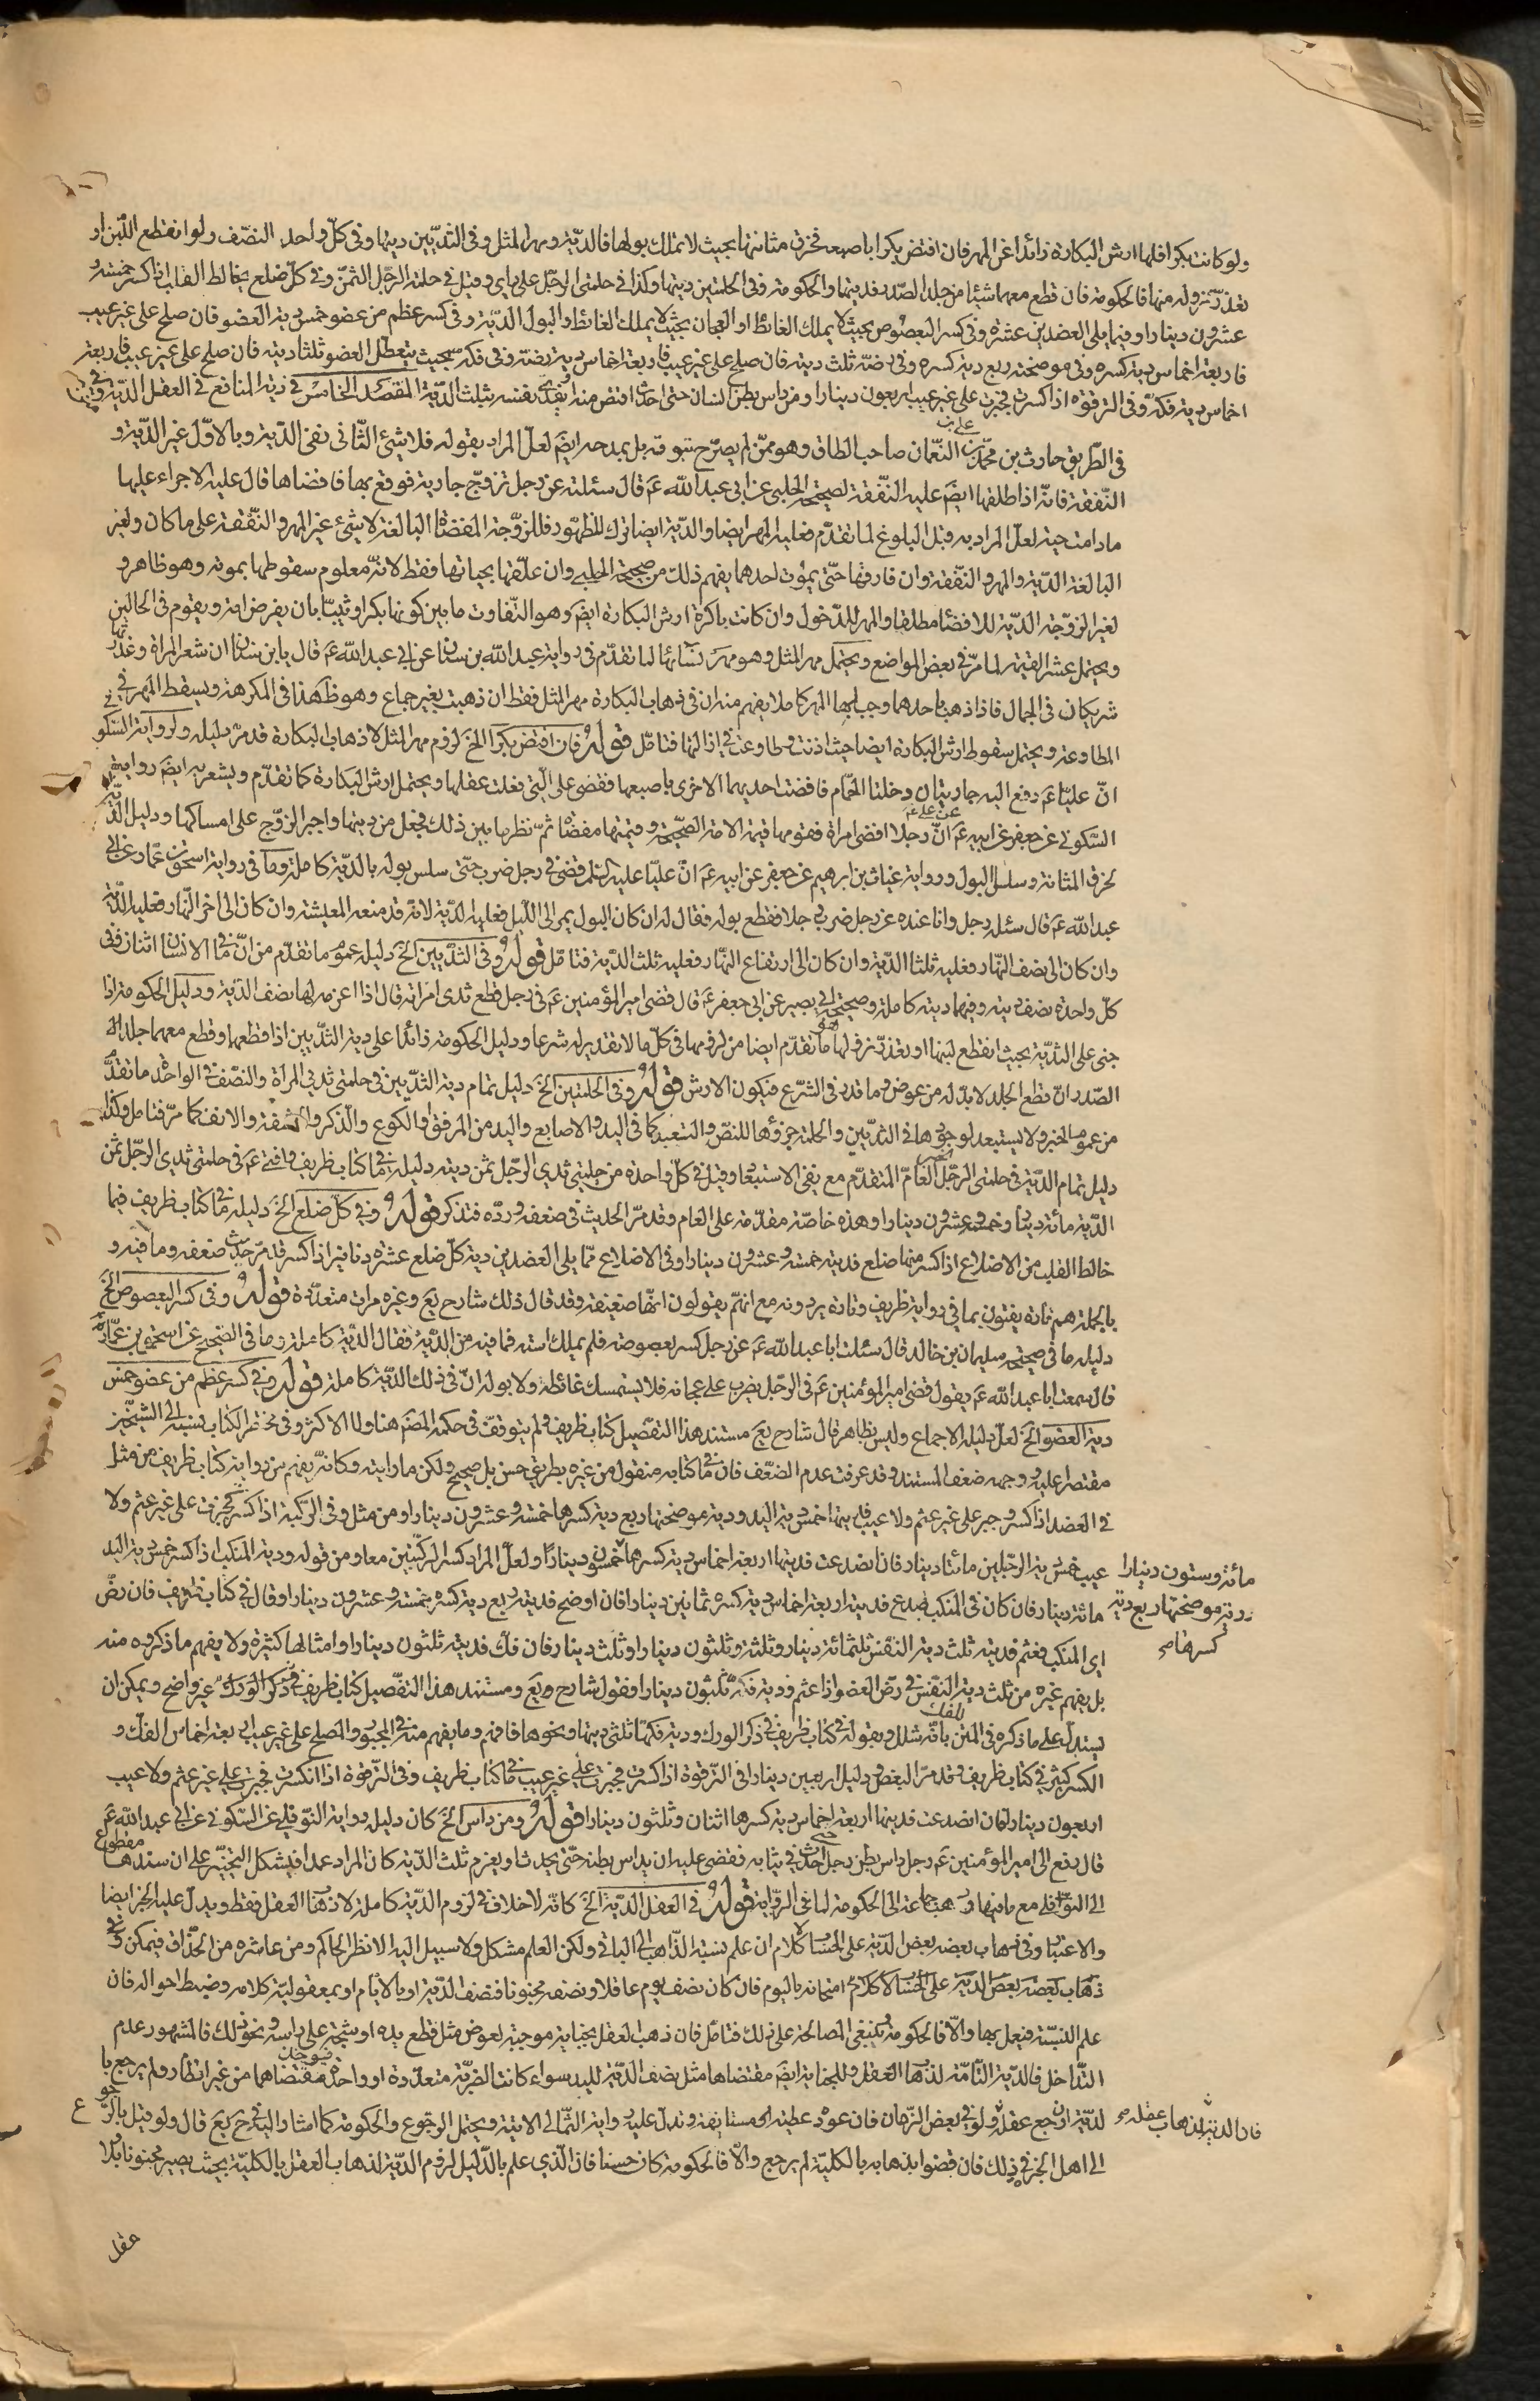 ولو كانت بكرا فلها ارش البكارة زائدا عن المهر فان افتض بكرا باصبعه فخرق مثانتها بحيث لا تملك بولها فالدية ومهر المثل وفى الثديين ديتها وفى كل واحد النصف ولو انقطع اللبن او
تعذر نزوله منها فالحكومة فان قطع معهما شيئا من جلد الصدر فديتها والحكومة وفى الحلمتين ديتها وكذا فى حلمتى الرجل على راى وقيل فى حلمة الرجل الثمن وفى كل ضلع يخالط القلب اذا كسر خمسة و
عشرون دينارا وفيما يلى العضدين عشرة وفى كسر البعصوص بحيث لا يملك الغائط او العجان بحيث لا يملك الغائط والبول الدية وفى كسر عظم من عضو خمس دية العضو فان صلح على غير عيب
فاربعة اخماس دية كسره وفى موضحته ربع دية كسره وفى رضه ثلث ديته فان صلح على غير عيب فاربعة اخماس دية رضه وفى فكه بحيث يتعطل العضو ثلثا ديته فان صلح على غير عيب فاربعة
اخماس دية فكه وفى الترقوة اذا كسرت فجبرت على غير عيب اربعون دينارا ومن داس بطن انسان حتى احدث اقتص منه او يفدى نفسه بثلث الدية المقصد الخامس فى دية المنافع فى العقل الدية وفى
فى الطريق حارث بن محمد بن النعمان صاحب الطاق وهو ممن لم يصرح بتوثيقه بل بمدحه ايضا لعل المراد بقوله فلا شئ الثانى نفى الدية وبالاول غير الدية و
النفقة فانه اذا طلقها ايض عليه النفقة لصحيحة الحلبى عن ابى عبد الله ع قال سئلته عن رجل تزوج جارية فوقع بها فافضاها قال عليه الاجراء عليها
ما دامت حية لعل المراد به قبل البلوغ لما تقدم فعليه المهر ايضا والدية ايضا ترك للظهور فللزوجة المفضاة البالغة لا شئ غير المهر والنفقة على ما كان ولغير
البالغة الدية والمهر والنفقة وان فارقها حتى يموت احدهما يفهم ذلك من صحيحة الحلبى وان علقها بحياتها فقط لانه معلوم سقوطها بموته وهو ظاهر و
لغير الزوجة الدية للافضا مطلقا والمهر للدخول وان كانت باكرة ارش البكارة ايض وهو التفاوت ما بين كونها بكرا وثيبا بان يفرض امة ويقوم فى الحالين
ويحتمل عشر القيمة لما مر فى بعض المواضع ويحتمل مهر المثل وهو مهر نسائها لما تقدم فى رواية عبد الله بن سنان عن ابى عبد الله ع قال يا بن سنان ان شعر المراة وعذرتها
شريكان فى الجمال فاذا ذهب باحدهما وجب لها المهر كاملا يفهم منه ان فى ذهاب البكارة مهر المثل فقط ان ذهبت بغير جماع وهو ظ هذا فى المكرهة ويسقط المهر فى
المطاوعة ويحتمل سقوط ارش البكارة ايضا حيث اذنت وطاوعت فى ازالتها فتامل قوله فان افتض بكرا الخ لزوم مهر المثل لاذهاب البكارة قد مر دليله ولرواية السكونى
ان عليا ع رفع اليه جاريتان دخلتا الحمام فافضت احديهما الاخرى باصبعها فقضى على التى فعلت عقلها ويحتمل ارش البكارة كما تقدم ويشعر به ايض رواية
السكونى عن جعفر عن ابيه عن على ع ان رجلا افضى امراة فقومها قيمة الامة الصحيحة وقيمتها مفضاة ثم نظر ما بين ذلك فجعل من ديتها واجبر الزوج على امساكها ودليل الدية
لخرق المثانة وسلس البول رواية غياث بن ابرهيم عن جعفر عن ابيه ع ان عليا عليه السلم قضى فى رجل ضرب حتى سلس بوله بالدية كاملة وما فى رواية اسحق بن عمار عن ابى
عبد الله ع قال سئله رجل وانا عنده عن رجل ضرب رجلا فقطع بوله فقال له ان كان البول يمر الى الليل فعليه الدية لانه قد منعه المعيشة وان كان الى اخر النهار فعليه الدية
وان كان الى نصف النهار فعليه ثلثا الدية وان كان الى ارتفاع النهار فعليه ثلث الدية فتامل قوله وفى الثديين الخ دليله عموم ما تقدم من ان ما فى الانسان اثنان ففى
كل واحدة نصف دية وفيهما دية كاملة وصحيحة ابى بصير عن ابى جعفر ع قال قضى امير المؤمنين ع فى رجل قطع ثدى امراته قال اذا اغرمه لها نصف الدية ودليل الحكومة اذا
جنى على الثدية بحيث انقطع لبنها او تعذر نزوله ما تقدم ايضا من لزومها فى كل ما لا تقدير له شرعا ودليل الحكومة زائدا على دية الثديين اذا قطعهما وقطع معهما جلدا له
الصدر ان قطع الجلد لا بد له من عوض وما قدر فى الشرع فيكون الارش قوله وفى الحلمتين الخ دليل تمام دية الثديين فى حلمتى ثدى المراة والنصف فى الواحدة ما تقدم
من عموم الخبر ولا يستبعد لوجوبها فى الثديين والحلمة جزؤها للنص والتعبد كما فى اليد والاصابع واليد من المرفق والكوع والذكر والحشفة والانف كما مر فتامل وكذا
دليل تمام الدية فى حلمتى الرجل العام المتقدم مع نفى الاستبعاد وقيل فى كل واحدة من حلمتى ثدى الرجل ثمن ديته دليله ما فى كتاب ظريف وافتى ع فى حلمتى ثدى الرجل ثمن
الدية مائة دينار وخمسة وعشرون دينارا وهذه خاصة مقدمة على العام وقد مر الحديث فى ضعفه ورده فتذكر قوله وفى كل ضلع الخ دليله ما فى كتاب ظريف فيما
خالط القلب من الاضلاع اذا كسر منها ضلع فديته خمسة وعشرون دينارا وفى الاضلاع مما يلى العضدين دية كل ضلع عشرة دنانير اذا كسر قد مر حديث ضعفه وما فيه و
بالجملة هم تارة يفتون بما فى رواية ظريف وتارة يردونه مع انهم يقولون انها ضعيفة وقد قال ذلك شارح يع وغيره مرات متعددة قوله وفى كسر البعصوص الخ
دليله ما فى صحيحة سليمان بن خالد قال سئلت ابا عبد الله ع عن رجل كسر بعصوصه فلم يملك استه فما فيه من الدية فقال الدية كاملة وما فى الصحيح عن اسحق بن عمار
قال سمعت ابا عبد الله ع يقول قضى امير المؤمنين ع فى الرجل يضرب على عجانه فلا يستمسك غائطه ولا بوله ان فى ذلك الدية كاملة قوله وفى كسر عظم من عضو خمس
دية العضو الخ لعل دليله الاجماع وليس بظاهر قال شارح يع مستند هذا التفصيل كتاب ظريف ولم يتوقف فى حكمه المصنف هنا ولا الاكثر وفى مختصر الكتاب نسبه الى الشيخين
مقتصرا عليه ووجهه ضعف المستند وقد عرفت عدم الضعف فان ما فى كتابه منقول من غيره بطريق حسن بل صحيح ولكن ما رايته وكانه يفهم من رواية كتاب ظريف من مثل
فى العضد اذا كسر وجبر على غير عثم ولا عيب فديتها خمس دية اليد ودية موضحتها ربع دية كسرها خمسة وعشرون دينارا ومن مثل وفى الركبة اذا كسرت فجبرت على غير عثم ولا
عيب خمس دية الرجلين مائتا دينار فان انصدعت فديتها اربعة اخماس دية كسرها خمسون دينارا ولعل المراد كسر الركبتين معا ومن قوله ودية المنكب اذا كسر خمس دية اليد
مائة دينار فان كان فى المنكب صدع فديته اربعة اخماس دية كسره ثمانين دينارا فان اوضح فديته ربع دية كسره خمسة وعشرون دينارا وقال فى كتاب ظريف فان رض
اى المنكب فعثم فديته ثلث دية النفس ثلثمائة دينار وثلثة وثلثون دينارا وثلث دينار فان فك فديته ثلثون دينارا وامثالها كثيرة ولا يفهم ما ذكروه منه
بل يفهم غيره من ثلث دية النفس فى رض العضو اذا عثم ودية فكه ثلثون دينارا وقول شارح يع ومستند هذا التفصيل كتاب ظريف فى ذكر الورك غير واضح ويمكن ان
يستدل على ما ذكره فى المتن للفك بانه شلل وبقوله فى كتاب ظريف فى ذكر الورك ودية فكها ثلثى ديتها ونحوها فافهم وما يفهم منه فى المجبور والصلح على غير عيب اربعة اخماس الفك و
الكسر كثير فى كتاب ظريف وقد مر البعض ودليل اربعين دينارا فى الترقوة اذا كسرت فجبرت على غير عيب ما فى كتاب ظريف وفى الترقوة اذا انكسرت فجبرت على غير عثم ولا عيب
اربعون دينارا فان انصدعت فديتها اربعة اخماس دية كسرها اثنان وثلثون دينارا قوله ومن داس الخ كان دليله رواية النوفلى عن السكونى عن ابى عبد الله ع
قال رفع الى امير المؤمنين ع رجل داس بطن رجل حتى احدث فى ثيابه فقضى عليه ان يداس بطنه حتى يحدث او يغرم ثلث الدية كان المراد عمدا فيشكل التخيير على ان سندها مقطوع
الى النوفلى مع ما فيها وذهب جماعة الى الحكومة لما فى الرواية قوله فى العقل الدية الخ كانه لا خلاف فى لزوم الدية كاملة لاذهاب العقل فقط ويدل عليه الخبر ايضا
والاعتبار وفى ذهاب بعضه بعض الدية على الحساب لا كلام ان علم نسبة الذاهب الى الباقى ولكن العلم مشكل ولا سبيل اليه الا نظر الحاكم ومن عاشره من الحذاق فيمكن فى
ذهاب بعضه بعض الدية على الحساب لا كلام امتحانه باليوم فان كان نصف يوم عاقلا ونصفه مجنونا فنصف الدية او بالايام او بمعقولية كلامه وضبط احواله فان
علم النسبة فيعمل بها والا فالحكومة وينبغى المصالحة على ذلك فتامل فان ذهب العقل بجناية موجبة لعوض مثل قطع يده او شجة على راسه ونحو ذلك فالمشهور عدم
التداخل فالدية التامة لذهاب العقل وللجناية ايض مقتضاها مثل نصف الدية لليد سواء كانت الضربة متعددة او واحدة فيوجبان مقتضاهما من غير انتظار ولم يرجع با
لدية ان رجع عقله ولو فى بعض الزمان فان عوده عطية الهى مستانفة وتدل عليه رواية الثمالى الاتية ويحتمل الرجوع والحكومة كما اشار اليه فى شرح يع قال ولو قيل بالرجوع
الى اهل الخبرة فى ذلك فان قضوا بذهابه بالكلية لم يرجع والا فالحكومة كان حسنا فان الذى علم بالدليل لزوم الدية لذهاب العقل بالكلية بحيث يصير مجنونا بلا
مائة وستون دينارا
ودية موضحتها ربع دية
كسرها صح
فان الدية لذهاب عقله صح
عقل